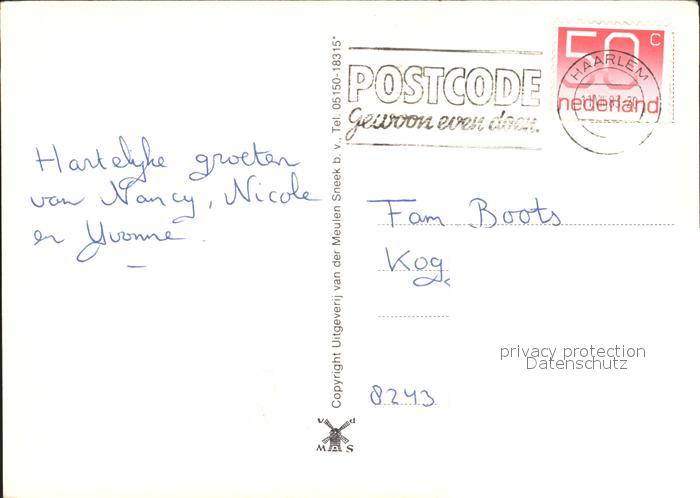 Hartelijke groeten
van Nancy, Nicole
en Yvonne.
Copyright Uitgeverij van der Meulen Sneek b. v., Tel. 05150-18315*
v d
M S
POSTCODE
Gewoon even doen.
HAARLEM
50 c
nederland
Fam Boots
Kog
privacy protection
Datenschutz
8243